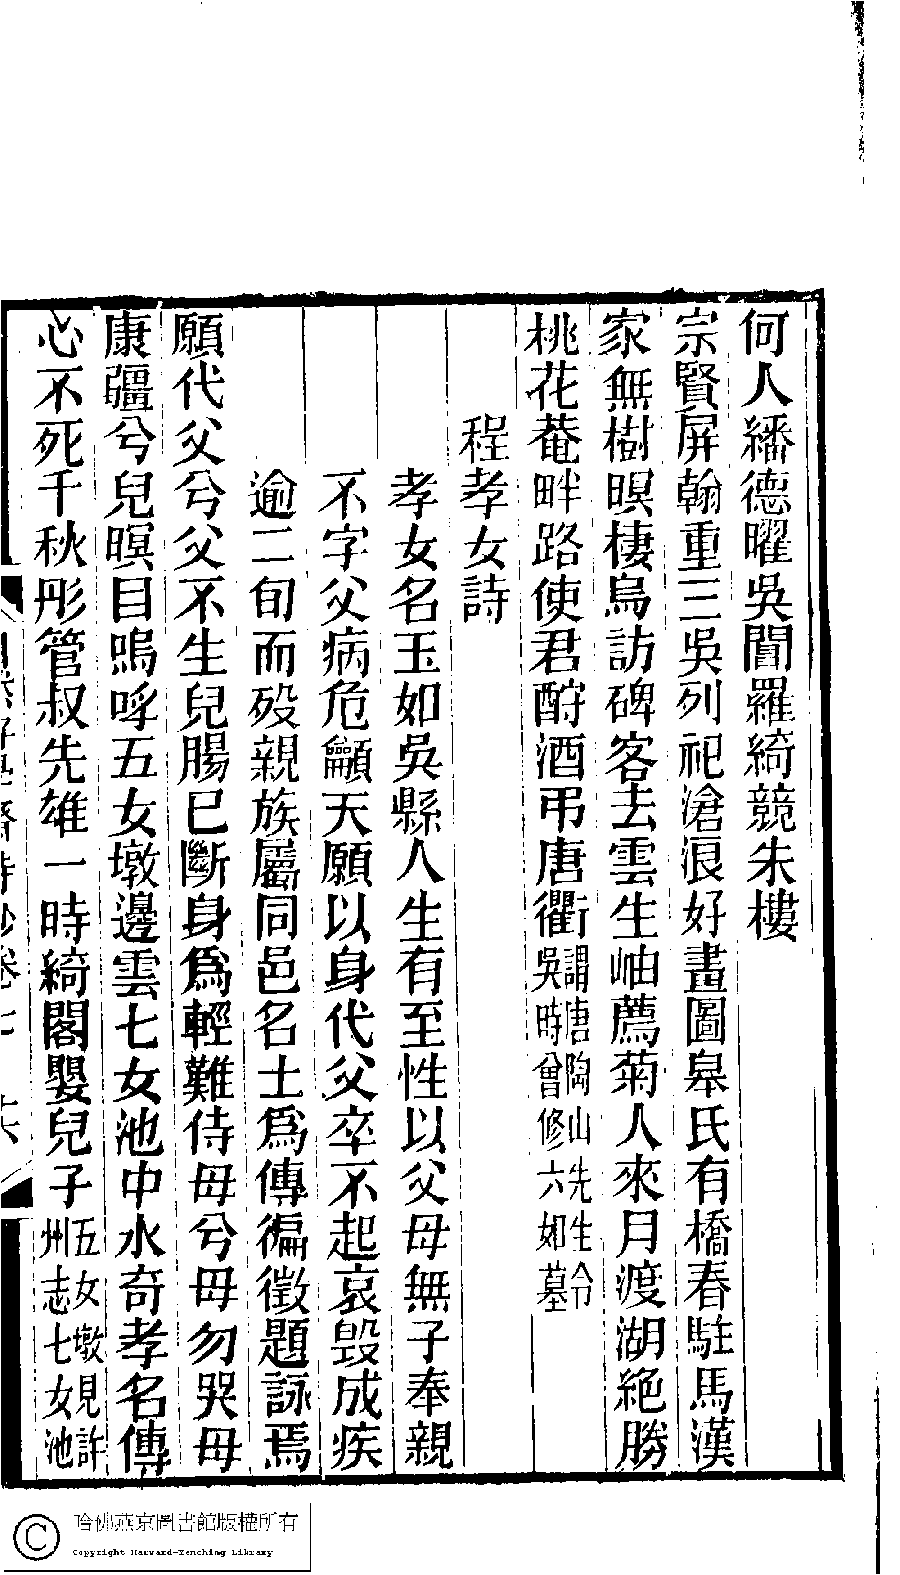 何人繙德曜吳閶羅綺競朱樓
宗賢屏翰重三吳列祀滄浪好畫圖皋氏有橋春駐馬漢
家無樹暝棲烏訪碑客去雲生岫薦菊人來月渡湖絶勝
桃花菴畔路使君酹酒弔唐衢謂唐陶山先生令
吳時曾修六如墓
程孝女詩
孝女名玉如吳縣人生有至性以父母無子奉親
不字父病危籲天願以身代父卒不起哀毁成疾
逾二旬而歿親族屬同邑名士爲傳徧徵題詠焉
願代父兮父不生兒腸已斷身爲輕難侍母兮母勿哭母
康彊兮兒暝目嗚呼五女墩邊雲七女池中水奇孝名傳
心不死千秋彤管叔先雄一時綺閣嬰兒子五女墩見許
州志七女池
詩鈔卷七
十六
哈佛燕京圖書館版權所有
Copyright Harvard-Yenching Library